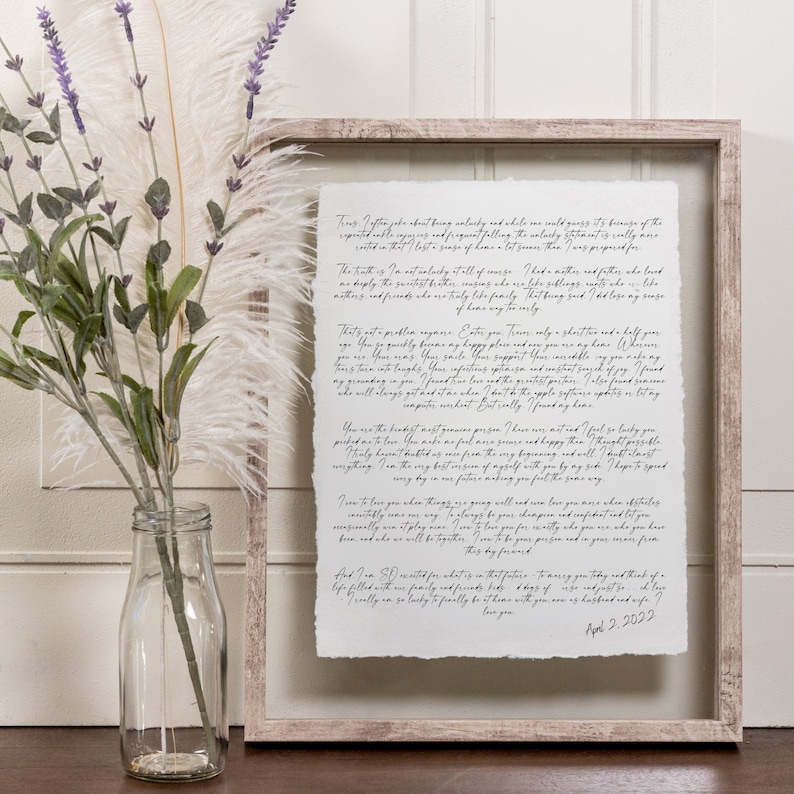 Trevs, I often joke about being unlucky and while one could guess it's because of the
repeated ankle injuries and frequent falling, the unlucky statement is really more
rooted in that I lost a sense of home a lot sooner than I was prepared for.
The truth is I'm not unlucky at all of course. I had a mother and father who loved
me deeply, the sweetest brother, cousins who are like siblings, aunts who are like
mothers, and friends who are truly like family. That being said, I did lose my sense
of home way too early.
That's not a problem anymore. Enter you, Trevor, only a short two and a half year
ago. You so quickly became my happy place and now you are my home. Wherever
you are. Your arms. Your smile. Your support. Your incredible way you make my
tears turn into laughs. Your infectious optimism and constant search of joy. I found
my grounding in you. I found true love and the greatest partner. I also found someone
who will always get mad at me when I don't do the apple software updates or let my
computer overheat. But really, I found my home.
You are the kindest, most genuine person I have ever met and I feel so lucky you
picked me to love. You make me feel more secure and happy than I thought possible.
I truly haven't doubted us once from the very beginning, and well, I doubt almost
everything. I am the very best version of myself with you by my side. I hope to spend
every day in our future making you feel the same way.
I vow to love you when things are going well and even love you more when obstacles
inevitably come our way. To always be your champion and confidant and let you
occasionally win at play nine. I vow to love you for exactly who you are, who you have
been, and who we will be together. I vow to be your person and in your corner from
this day forward.
And I am SO excited for what is in that future - to marry you today and think of a
life filled with our family and friends, kids, dogs of and just so love
I really am so lucky to finally be at home with you, now as husband and wife. I
love you.
April 2, 2022